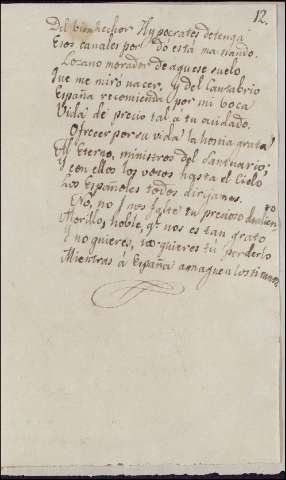 12.
Del bienhechor Hypocrates detenga
Esos canales por do está manando.
Lozano morador de aquese suelo
Que me miró nacer, y del Cantabrio
España recomienda por mi boca
Vida de precio tal a tu cuidado.
Ofrecer por su vida la hostia grata
Al Eterno, ministros del Santuario;
Y con ellos los votos hasta el Cielo
Los Españoles todos dirijamos.
No, no nos falte tu precioso
Morillo, noble, q.e nos es tan grato
Y no quieres, no quieres tú perderlo
Mientras á España amaguen los tiranos.